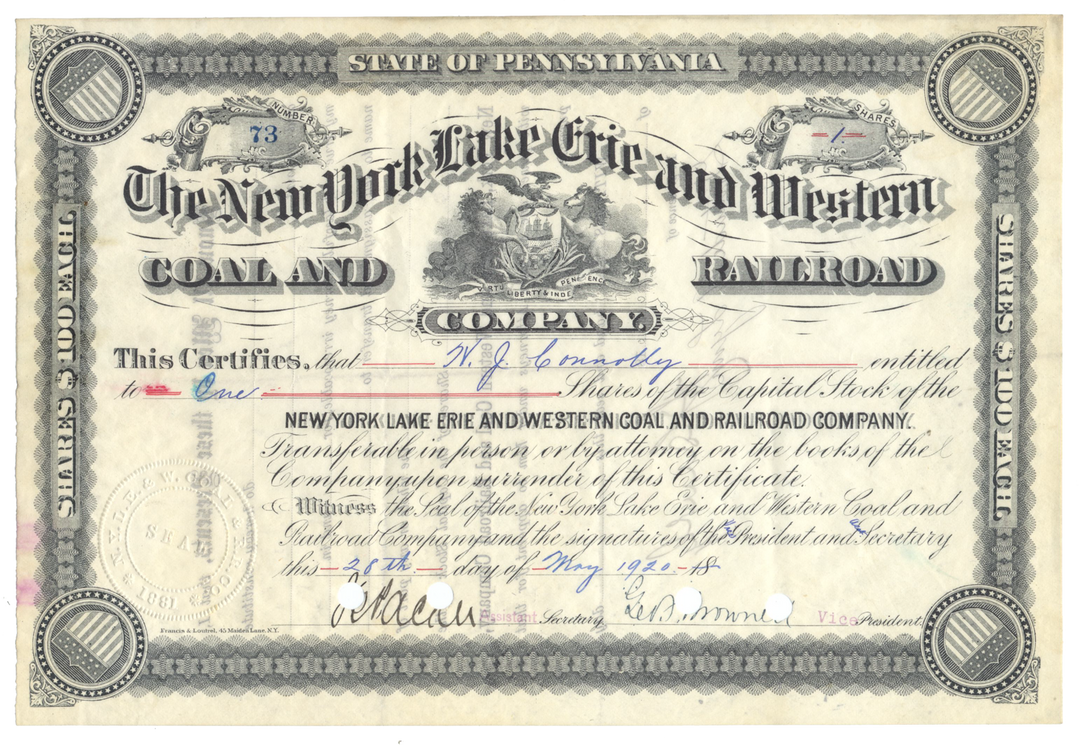 STATE OF PENNSYLVANIA
NUMBER
73
SHARES
-1-
The New York Lake Erie and Western
COAL AND RAILROAD
COMPANY.
VIRTUE LIBERTY & INDEPENDENCE
SHARES $100 EACH
SHARES $100 EACH
This Certifies, that W. J. Connolly entitled
to One Shares of the Capital Stock of the
NEW YORK LAKE ERIE AND WESTERN COAL AND RAILROAD COMPANY.
Transferable in person or by attorney on the books of the
Company upon surrender of this Certificate.
Witness the Seal of the New York Lake Erie and Western Coal and
Railroad Company and the signatures of the President and Secretary
this 28th day of May 1920
SEAL
1881
Assistant Secretary Vice President.
Francis & Loutrel, 45 Maiden Lane, N.Y.